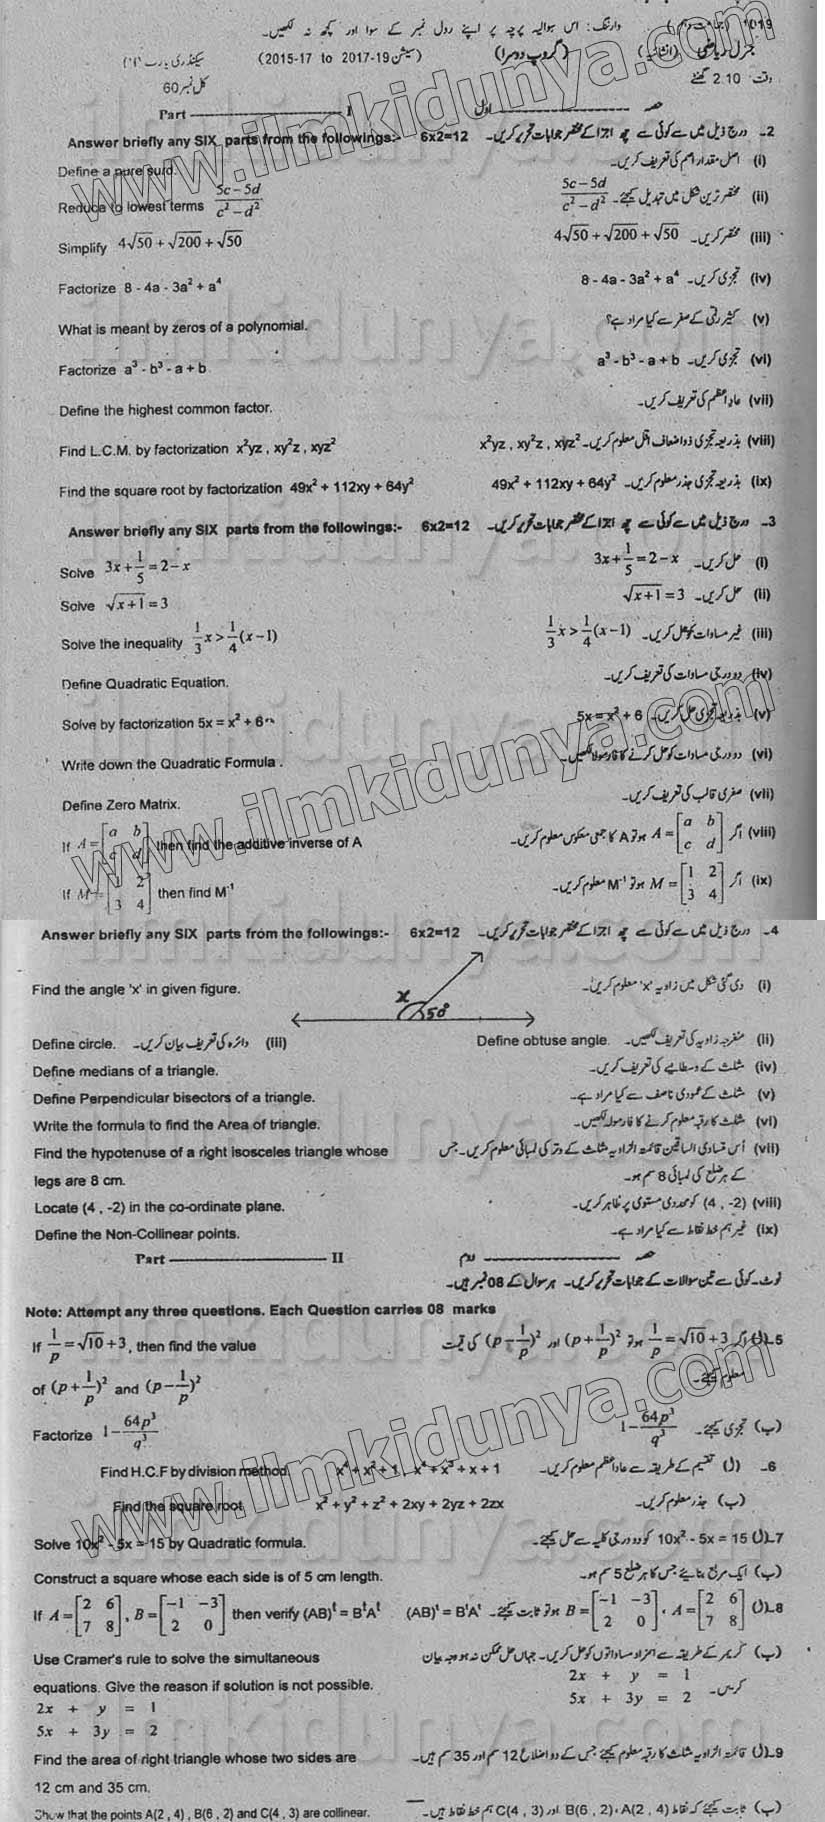 1019 (جماعت دہم) وارننگ: اس سوالیہ پرچہ پر اپنے رول نمبر کے سوا اور کچھ نہ لکھیں۔
جنرل ریاضی (انشائیہ) (گروپ دوسرا) (سیشن 2015-17 to 2017-19) سیکنڈری
وقت 2.10 گھنٹے کل نمبر 60
Part I حصہ اول
Answer briefly any SIX parts from the followings:- 6x2=12 2۔ درج ذیل میں سے کوئی سے چھ اجزا کے مختصر جوابات تحریر کریں۔
Define a pure surd. (i) اصل مقدار اصم کی تعریف کریں۔
Reduce to lowest terms (5c-5d)/(c²-d²) (ii) مختصر ترین شکل میں تبدیل کیجئے۔ (5c-5d)/(c²-d²)
Simplify 4√50 + √200 + √50 (iii) مختصر کریں۔ 4√50 + √200 + √50
Factorize 8 - 4a - 3a² + a⁴ (iv) تجزی کریں۔ 8 - 4a - 3a² + a⁴
What is meant by zeros of a polynomial. (v) کثیر رقمی کے صفر سے کیا مراد ہے؟
Factorize a³ - b³ - a + b (vi) تجزی کریں۔ a³ - b³ - a + b
Define the highest common factor. (vii) عاد اعظم کی تعریف کریں۔
Find L.C.M. by factorization x²yz , xy²z , xyz² (viii) بذریعہ تجزی ذواضعاف اقل معلوم کریں۔ x²yz , xy²z , xyz²
Find the square root by factorization 49x² + 112xy + 64y² (ix) بذریعہ تجزی جذر معلوم کریں۔ 49x² + 112xy + 64y²
Answer briefly any SIX parts from the followings:- 6x2=12 3۔ درج ذیل میں سے کوئی سے چھ اجزا کے مختصر جوابات تحریر کریں۔
Solve 3x + 1/5 = 2 - x (i) حل کریں۔ 3x + 1/5 = 2 - x
Solve √(x+1) = 3 (ii) حل کریں۔ √(x+1) = 3
Solve the inequality 1/3 x > 1/4 (x-1) (iii) غیر مساوات کو حل کریں۔ 1/3 x > 1/4 (x-1)
Define Quadratic Equation. (iv) دو درجی مساوات کی تعریف کریں۔
Solve by factorization 5x = x² + 6 (v) بذریعہ تجزی حل کریں۔ 5x = x² + 6
Write down the Quadratic Formula . (vi) دو درجی مساوات کو حل کرنے کا فارمولا لکھیں۔
Define Zero Matrix. (vii) صفری قالب کی تعریف کریں۔
If A = [a b; c d] then find the additive inverse of A (viii) اگر A = [a b; c d] ہو تو A کا جمعی معکوس معلوم کریں۔
If M = [1 2; 3 4] then find M⁻¹ (ix) اگر M = [1 2; 3 4] ہو تو M⁻¹ معلوم کریں۔
Answer briefly any SIX parts from the followings:- 6x2=12 4۔ درج ذیل میں سے کوئی سے چھ اجزا کے مختصر جوابات تحریر کریں۔
Find the angle 'x' in given figure. x 50° (i) دی گئی شکل میں زاویہ 'x' معلوم کریں۔
Define circle. (iii) دائرہ کی تعریف بیان کریں۔ Define obtuse angle. (ii) منفرجہ زاویہ کی تعریف لکھیں۔
Define medians of a triangle. (iv) مثلث کے وسطانیے کی تعریف کریں۔
Define Perpendicular bisectors of a triangle. (v) مثلث کے عمودی ناصف سے کیا مراد ہے۔
Write the formula to find the Area of triangle. (vi) مثلث کا رقبہ معلوم کرنے کا فارمولہ لکھیں۔
Find the hypotenuse of a right isosceles triangle whose (vii) اُس متساوی الساقین قائمۃ الزاویہ مثلث کے وتر کی لمبائی معلوم کریں۔ جس
legs are 8 cm. کے ہر ضلع کی لمبائی 8 سم ہو۔
Locate (4 , -2) in the co-ordinate plane. (viii) (4 , -2) کو محددی مستوی پر ظاہر کریں۔
Define the Non-Collinear points. (ix) غیر ہم خط نقاط سے کیا مراد ہے۔
Part II حصہ دوم
نوٹ۔ کوئی سے تین سوالات کے جوابات تحریر کریں۔ ہر سوال کے 08 نمبر ہیں۔
Note: Attempt any three questions. Each Question carries 08 marks
If 1/p = √10 + 3, then find the value 5۔(ا) اگر 1/p = √10 + 3 ہو تو (p + 1/p)² اور (p - 1/p)² کی قیمت
of (p + 1/p)² and (p - 1/p)² معلوم کیجئے۔
Factorize 1 - 64p³/q³ (ب) تجزی کیجئے۔ 1 - 64p³/q³
Find H.C.F by division method. x⁴ + x² + 1 , x⁴ + x³ + x + 1 6۔ (ا) تقسیم کے طریقہ سے عاد اعظم معلوم کریں۔
Find the square root x² + y² + z² + 2xy + 2yz + 2zx (ب) جذر معلوم کریں۔
Solve 10x² - 5x = 15 by Quadratic formula. 7۔(ا) 10x² - 5x = 15 کو دو درجی کلیہ سے حل کیجئے۔
Construct a square whose each side is of 5 cm length. (ب) ایک مربع بنائیے جس کا ہر ضلع 5 سم ہو۔
If A = [2 6; 7 8], B = [-1 -3; 2 0] then verify (AB)ᵗ = BᵗAᵗ 8۔(ا) A = [2 6; 7 8] ، B = [-1 -3; 2 0] ہو تو ثابت کیجئے۔ (AB)ᵗ = BᵗAᵗ
Use Cramer's rule to solve the simultaneous (ب) کریمر کے طریقہ سے ہمزاد مساواتوں کو حل کریں۔ جہاں حل ممکن نہ ہو وجہ بیان
equations. Give the reason if solution is not possible. کریں۔
2x + y = 1 2x + y = 1
5x + 3y = 2 5x + 3y = 2
Find the area of right triangle whose two sides are 9۔(ا) قائمۃ الزاویہ مثلث کا رقبہ معلوم کیجئے جس کے دو اضلاع 12 سم اور 35 سم ہیں۔
12 cm and 35 cm.
Show that the points A(2 , 4) , B(6 , 2) and C(4 , 3) are collinear. (ب) ثابت کیجئے کہ نقاط A(2 , 4)، B(6 , 2) اور C(4 , 3) ہم خط نقاط ہیں۔
www.ilmkidunya.com